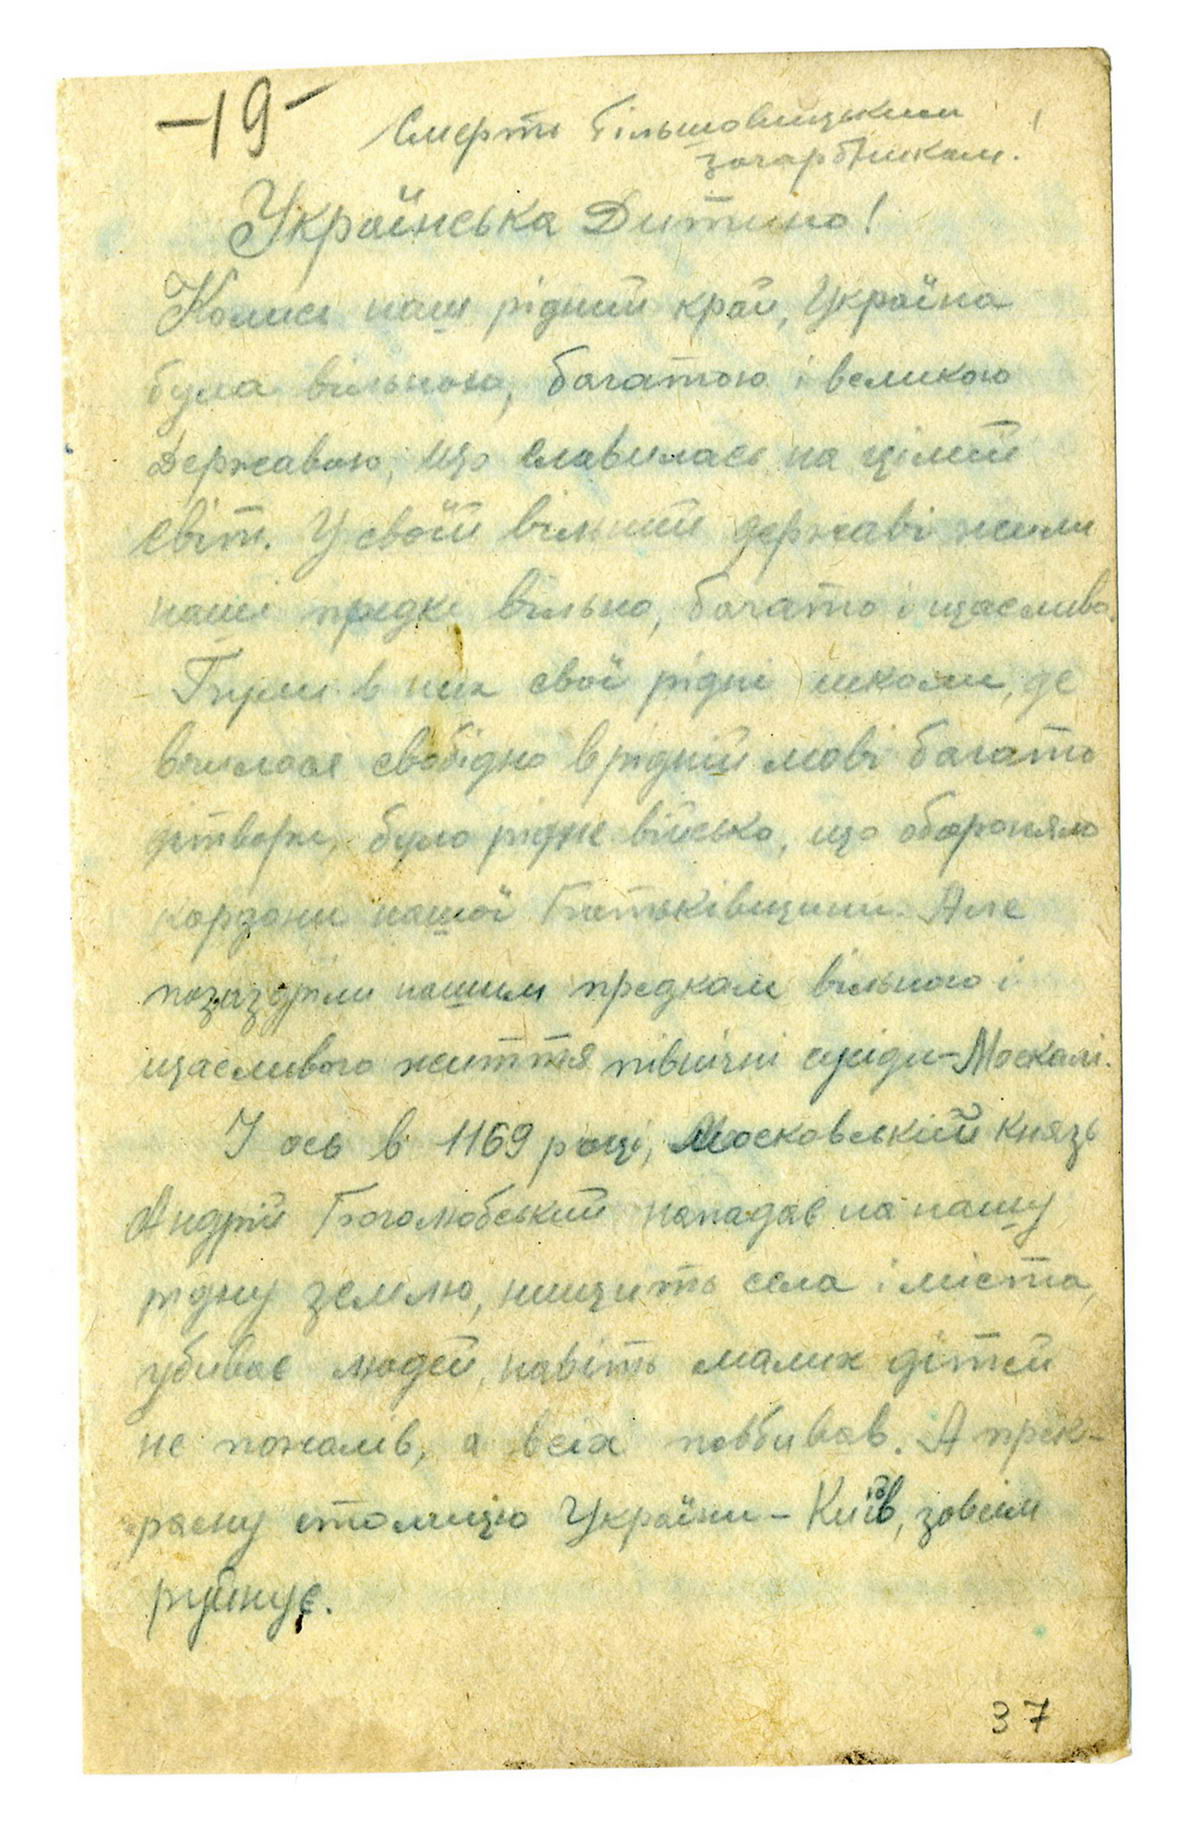 -19-
Смерть більшовицьким
загарбникам.
Українська Дитино!
Колись наш рідний край, Україна
була вільною, багатою і великою
Державою, що славилась на цілий
світ. У своїй вільній державі жили
наші предки вільно, багато і щасливо.
Були в них свої рідні школи, де
вчилося свобідно в рідній мові багато
дітвори, було рідне військо, що обороняло
кордони нашої Батьківщини. Але
позаздрили нашим предкам вільного і
щасливого життя північні сусіди-Москалі.
І ось в 1169 році, Московський князь
Андрій Боголюбський нападає на нашу
рідну землю, нищить села і міста,
убиває людей, навіть малих дітей
не пожалів, а всіх повбивав. А прек-
расну столицю України - Київ, зовсім
руйнує.
37